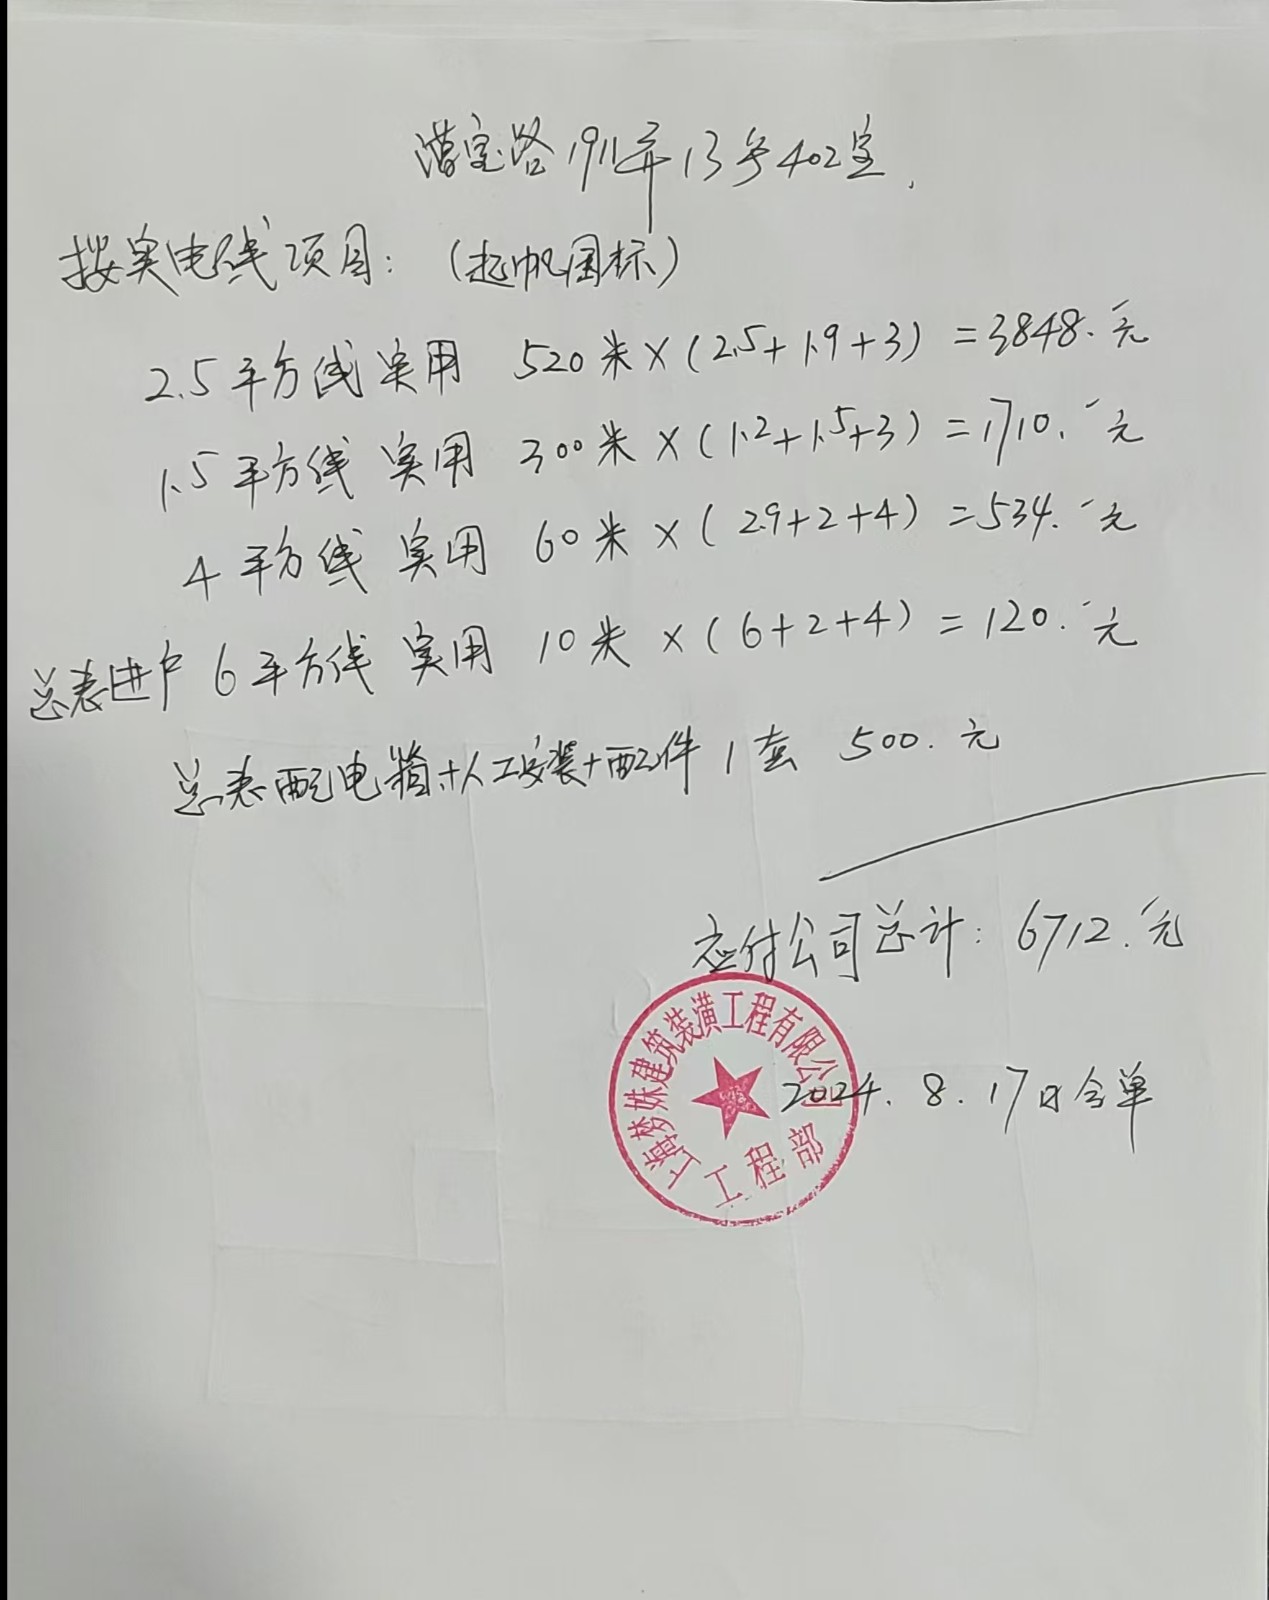 漕宝路1911弄13号402室.
按实电线项目:(起帆国标)
2.5平方线 实用 520米×(2.5+1.9+3)=3848.元
1.5平方线 实用 300米×(1.2+1.5+3)=1710.元
4平方线 实用 60米×(2.9+2+4)=534.元
总表进户 6平方线 实用 10米×(6+2+4)=120.元
总表配电箱+人工安装+配件 1套 500.元
应付公司总计: 6712.元
上海梦姝建筑装潢工程有限公司
工程部
2024. 8. 17日 单